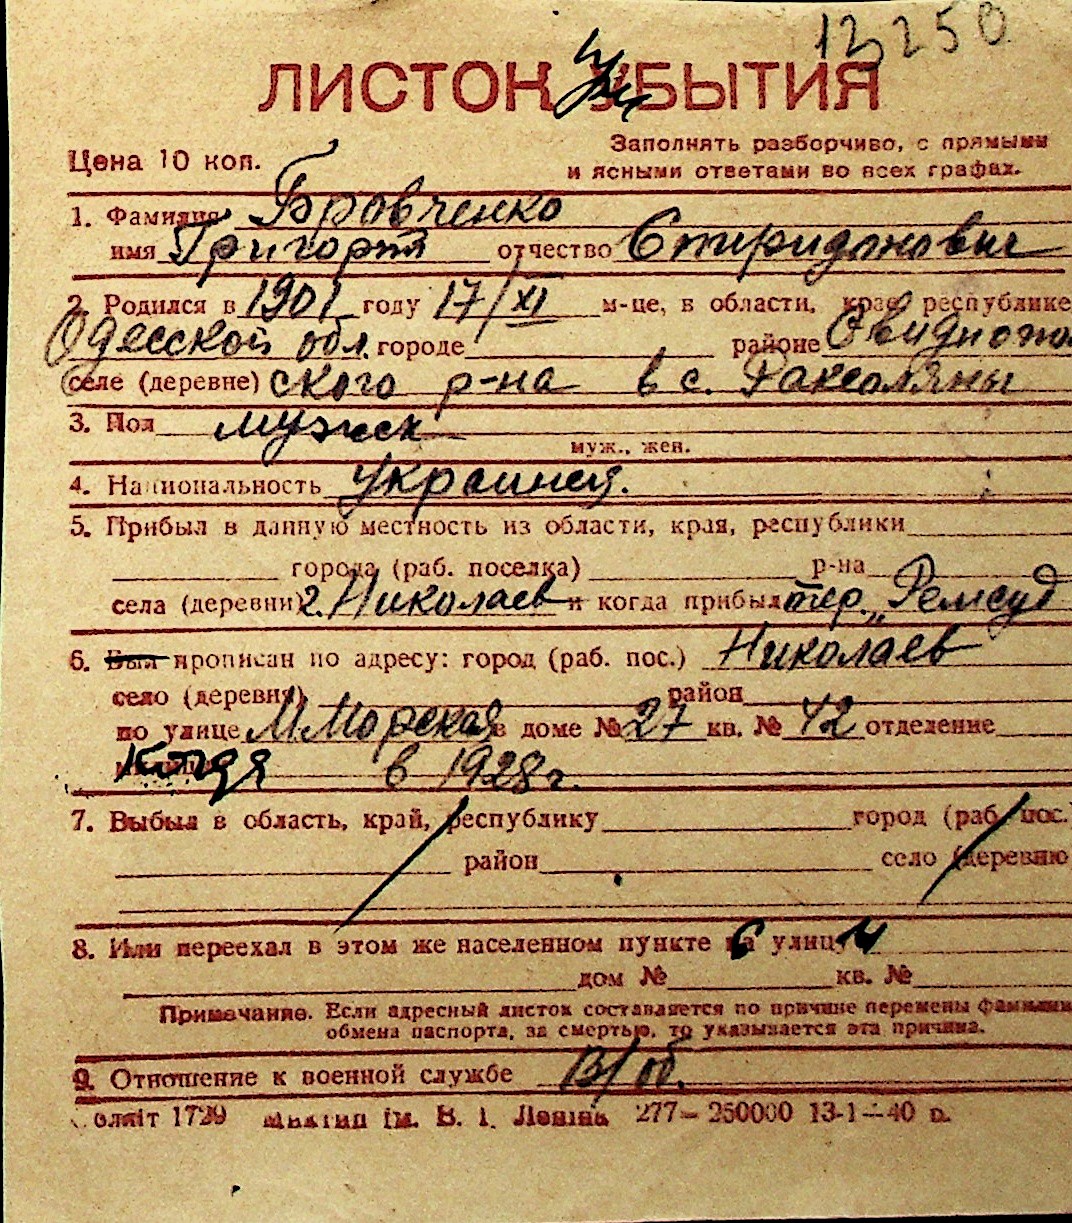 13250
ЛИСТОК УБЫТИЯ
Цена 10 коп.
Заполнять разборчиво, с прямыми
и ясными ответами во всех графах.
1. Фамилия Бровченко
имя Григорий отчество Спиридонович
2. Родился в 1901 году 17/XI м-це, в области, крае, республике
Одесской обл. городе районе Овидиополь
селе (деревне) ского р-на в с. Роксоляны
3. Пол мужск
муж., жен.
4. Национальность Украинец.
5. Прибыл в данную местность из области, края, республики
города (раб. поселка) р-на
села (деревни) г. Николаев и когда прибыл тер. „Ремсуд
6. Был прописан по адресу: город (раб. пос.) Николаев
село (деревня) район
по улице М Морская в доме № 27 кв. № 42 отделение
Когда в 1928 г.
7. Выбыл в область, край, республику город (раб. пос.)
район село (деревню
8. Или переехал в этом же населенном пункте с улицы
дом № кв. №
Примечание. Если адресный листок составляется по причине перемены фамилии
обмена паспорта, за смертью, то указывается эта причина.
9. Отношение к военной службе В/об.
1729 ім. В. І. Леніна 277—250000 13-1—40 р.